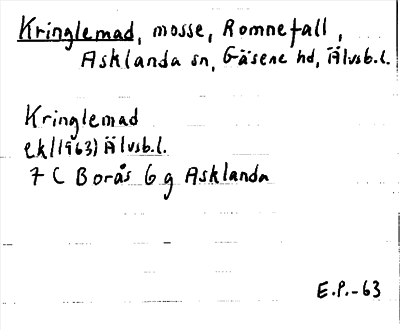 Kringlemad, mosse, Romnefall,
Asklanda sn, Gäsene hd, Älvsb.l.
Kringlemad
ek/(1963) Älvsb.l.
7 C Borås 6 g Asklanda
E.P.-63